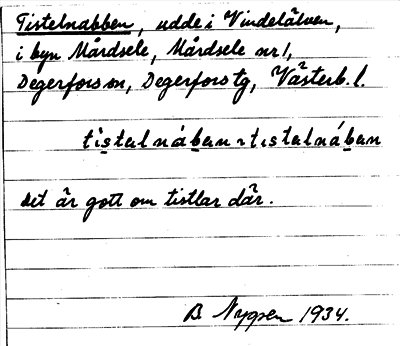 Tistelnabben, udde i Vindelälven,
i byn Mårdsele, Mårdsele nr 1,
Degerfors sn, Degerfors tg, Västerb. l.
tistalnában ~ tistalnában
det är gott om tistlar där.
B Nygren 1934.